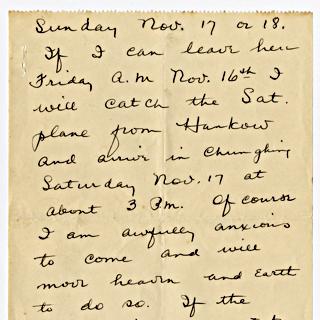 Sunday Nov. 17 or 18.
If I can leave here
Friday A.M Nov. 16th I
will catch the Sat.
plane from Hankow
and arrive in Chungking
Saturday Nov. 17 at
about 3 P.M. Of course
I am awfully anxious
to come and will
move heaven and Earth
to do so. If the